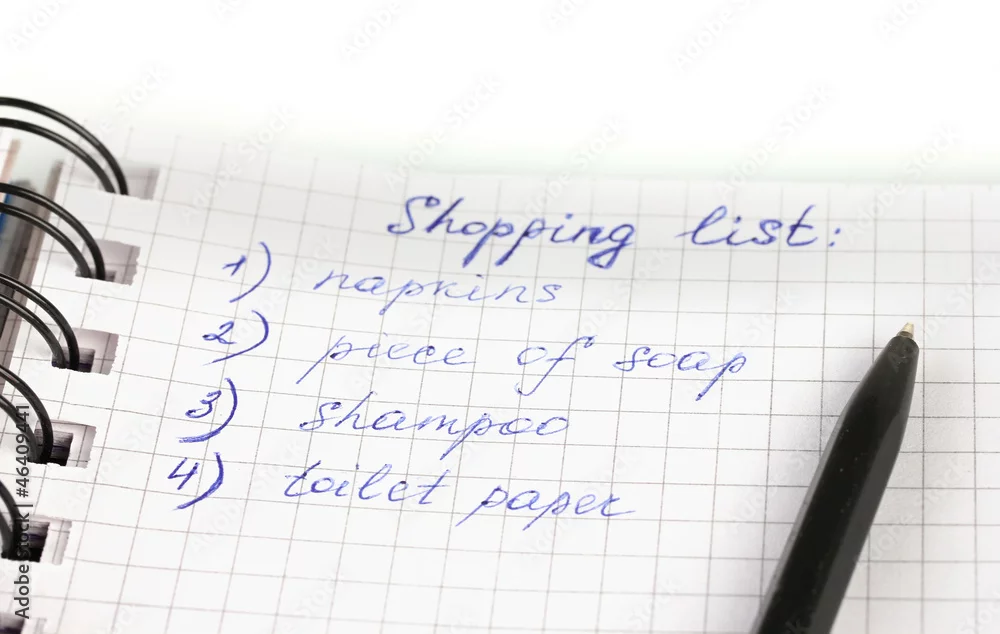 Shopping list:
1) napkins
2) piece of soap
3) shampoo
4) toilet paper
Adobe Stock | #46409441